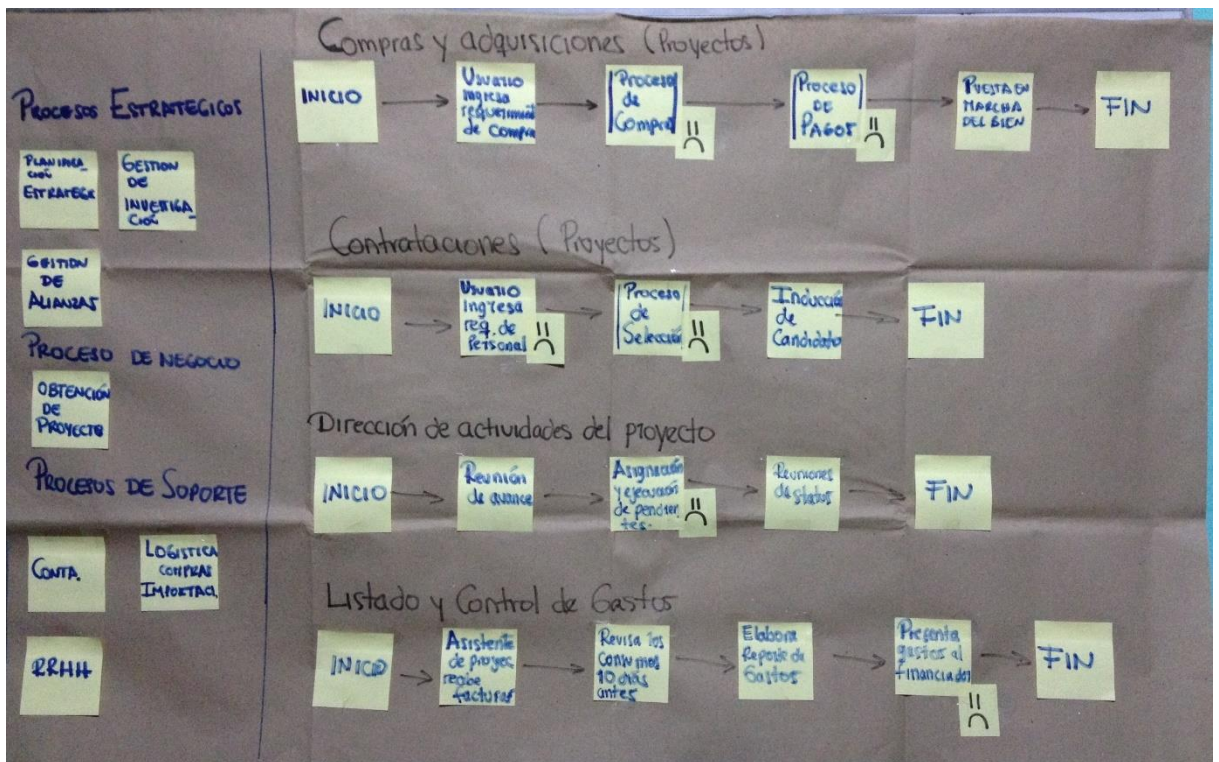 PROCESOS ESTRATEGICOS
PLANIFICA_
CIÓN
ESTRATEGK
GESTION
DE
INVESTIGA_
CIÓN
GESTION
DE
ALIANZAS
PROCESO DE NEGOCIO
OBTENCIÓN
DE
PROYECTO
PROCESOS DE SOPORTE
CONTA.
LOGISTICA
COMPRAS
IMPORTACI.
RRHH
Compras y adquisiciones (Proyectos)
INICIO
Usuario
ingresa
requerimient
de compra
Proceso
de
Compra
Proceso
DE
PAGOS
PUESTA EN
MARCHA
DEL BIEN
FIN
Contrataciones (Proyectos)
INICIO
Usuario
Ingresa
req. de
Personal
Proceso
de
Selección
Inducción
de
Candidato
FIN
Dirección de actividades del proyecto
INICIO
Reunión
de avance
Asignación
y ejecución
de pendien
tes.
Reuniones
de status
FIN
Listado y Control de Gastos
INICIO
Asistente
de proyec.
recibe
facturas
Revisa los
consumos
10 días
antes
Elabora
Reporte de
Gastos
Presenta
gastos al
financiador
FIN